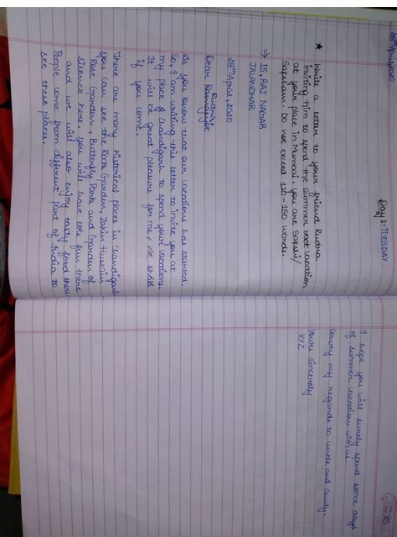 Day 2 - TUESDAY
★ Write a letter to your friend Rudra
inviting him to spend the summer vacation
at your place in Mumbai. you are Sakshi/
Saksham. Do not exceed 120-150 words.
→ 15, RAJ NAGAR
JALANDHAR
28th April, 2020
Dear
As you know that our vacations has started
So, I am writing this letter to invite you at
my place of chandigarh to spend your vacations.
It will be great pleasure for me,
if you come.
There are many historical places in chandigarh
you can see the Rock Garden, Zakir Hussain
Rose Garden, Butterfly Park and Garden of
Silence here. you will have lots fun there
and we will also enjoy tasty food there
People come from different part of India to
see these places.
I hope you will surely spend some days
of summer vacation with us.
Convey my regards to uncle and aunty.
Yours sincerely
XYZ